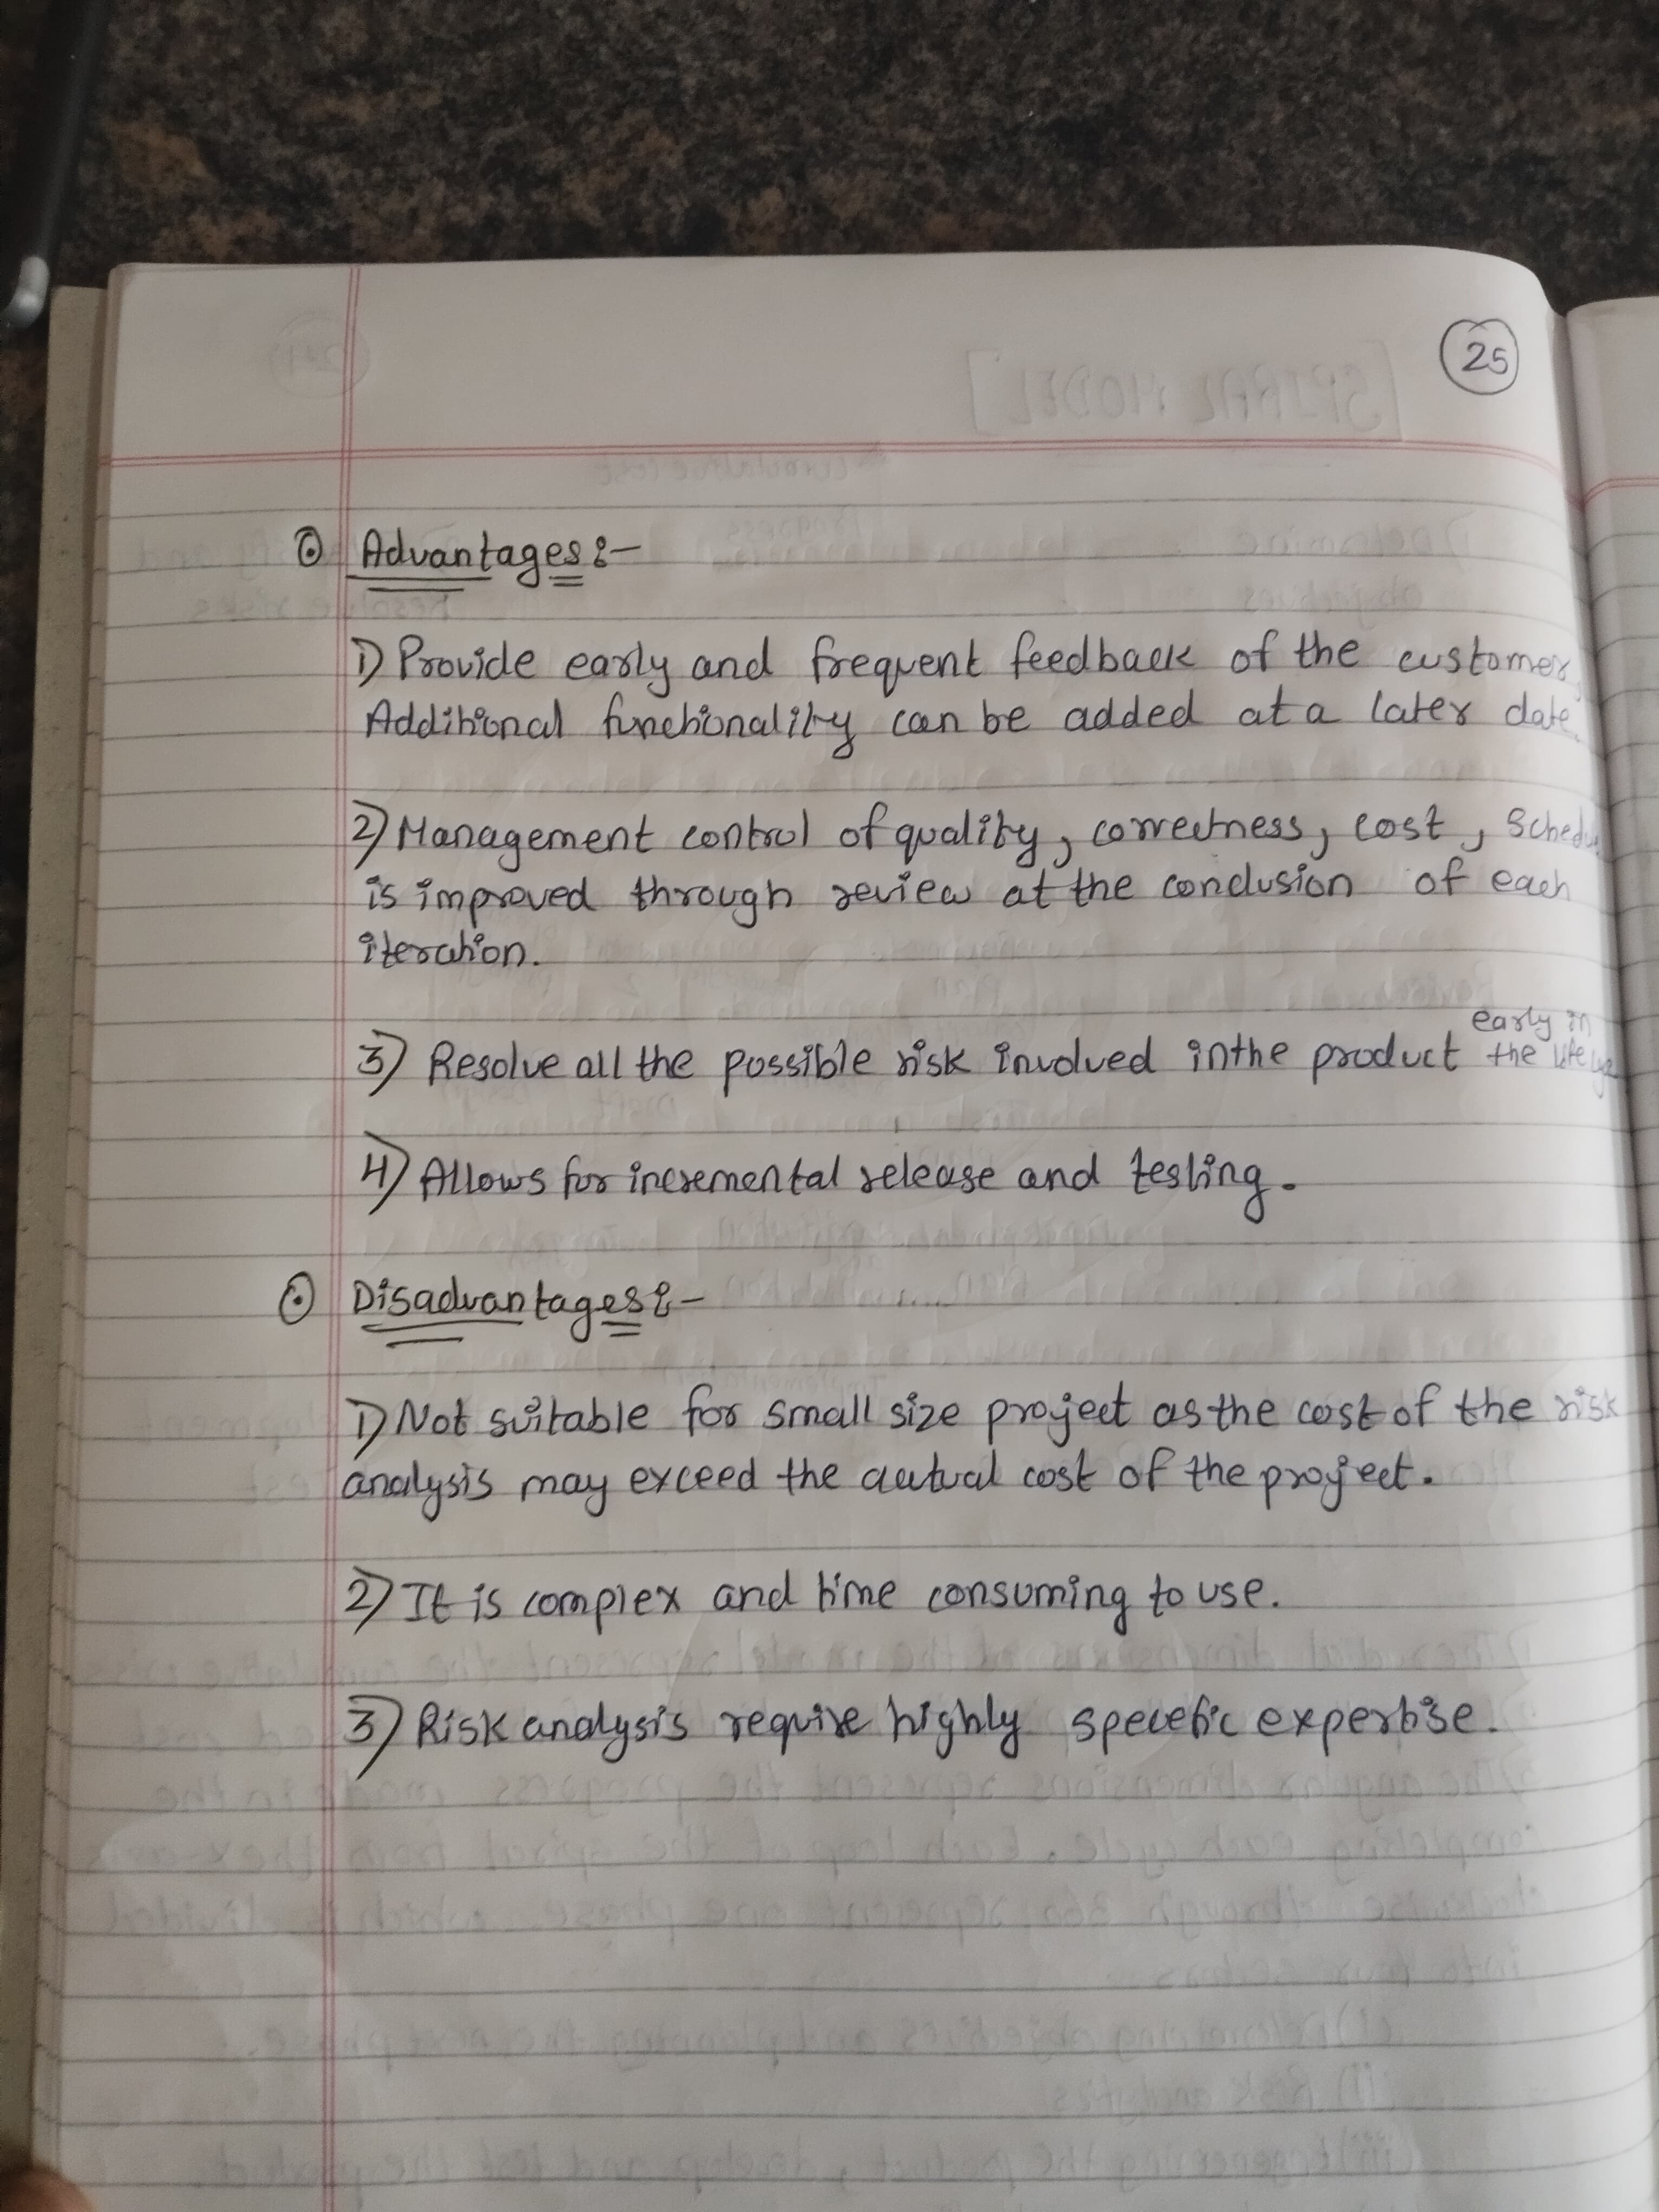 25
Advantages :-
1) Provide early and frequent feedback of the customer,
Additional functionality can be added at a later date.
2) Management control of quality, correctness, cost, Schedu
is improved through review at the conclusion of each
iteration.
early in
3) Resolve all the possible risk involved in the product the life
4) Allows for incremental release and testing.
Disadvantages :-
1) Not suitable for small size project as the cost of the risk
analysis may exceed the actual cost of the project.
2) It is complex and time consuming to use.
3) Risk analysis require highly specefic expertise.